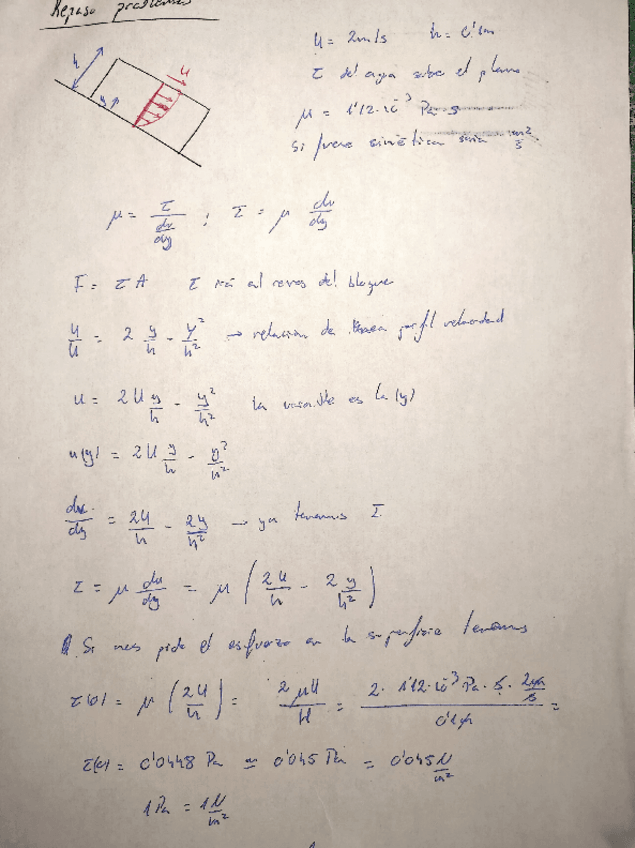 Repaso problemas
U = 2m/s h = 0'1m
τ del agua sobre el plano
μ = 1'12·10⁻³ Pa·s
Si fuese cinética sería m²/s
h
y
u
μ = τ / (du/dy) ; τ = μ du/dy
F = τ A τ irá al reves del bloque
u/U = 2 y/h - y²/h² → relacion de perfil velocidad
u = 2U y/h - y²/h² la variable es la (y)
u(y) = 2U y/h - y²/h²
du/dy = 2U/h - 2y/h² → ya tenemos τ
τ = μ du/dy = μ (2U/h - 2 y/h²)
Si nos pide el esfuerzo en la superficie tenemos
τ(0) = μ (2U/h) = 2μU/H = 2· 1'12·10⁻³ Pa·s· 2m/s / 0'1m =
τ(0) = 0'0448 Pa ≃ 0'045 Pa = 0'045 N/m²
1 Pa = 1 N/m²